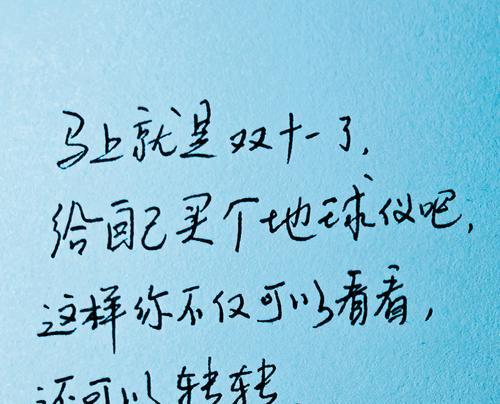 马上就是双十一了,
给自己买个地球仪吧,
这样你不仅可以看看,
还可以转转.